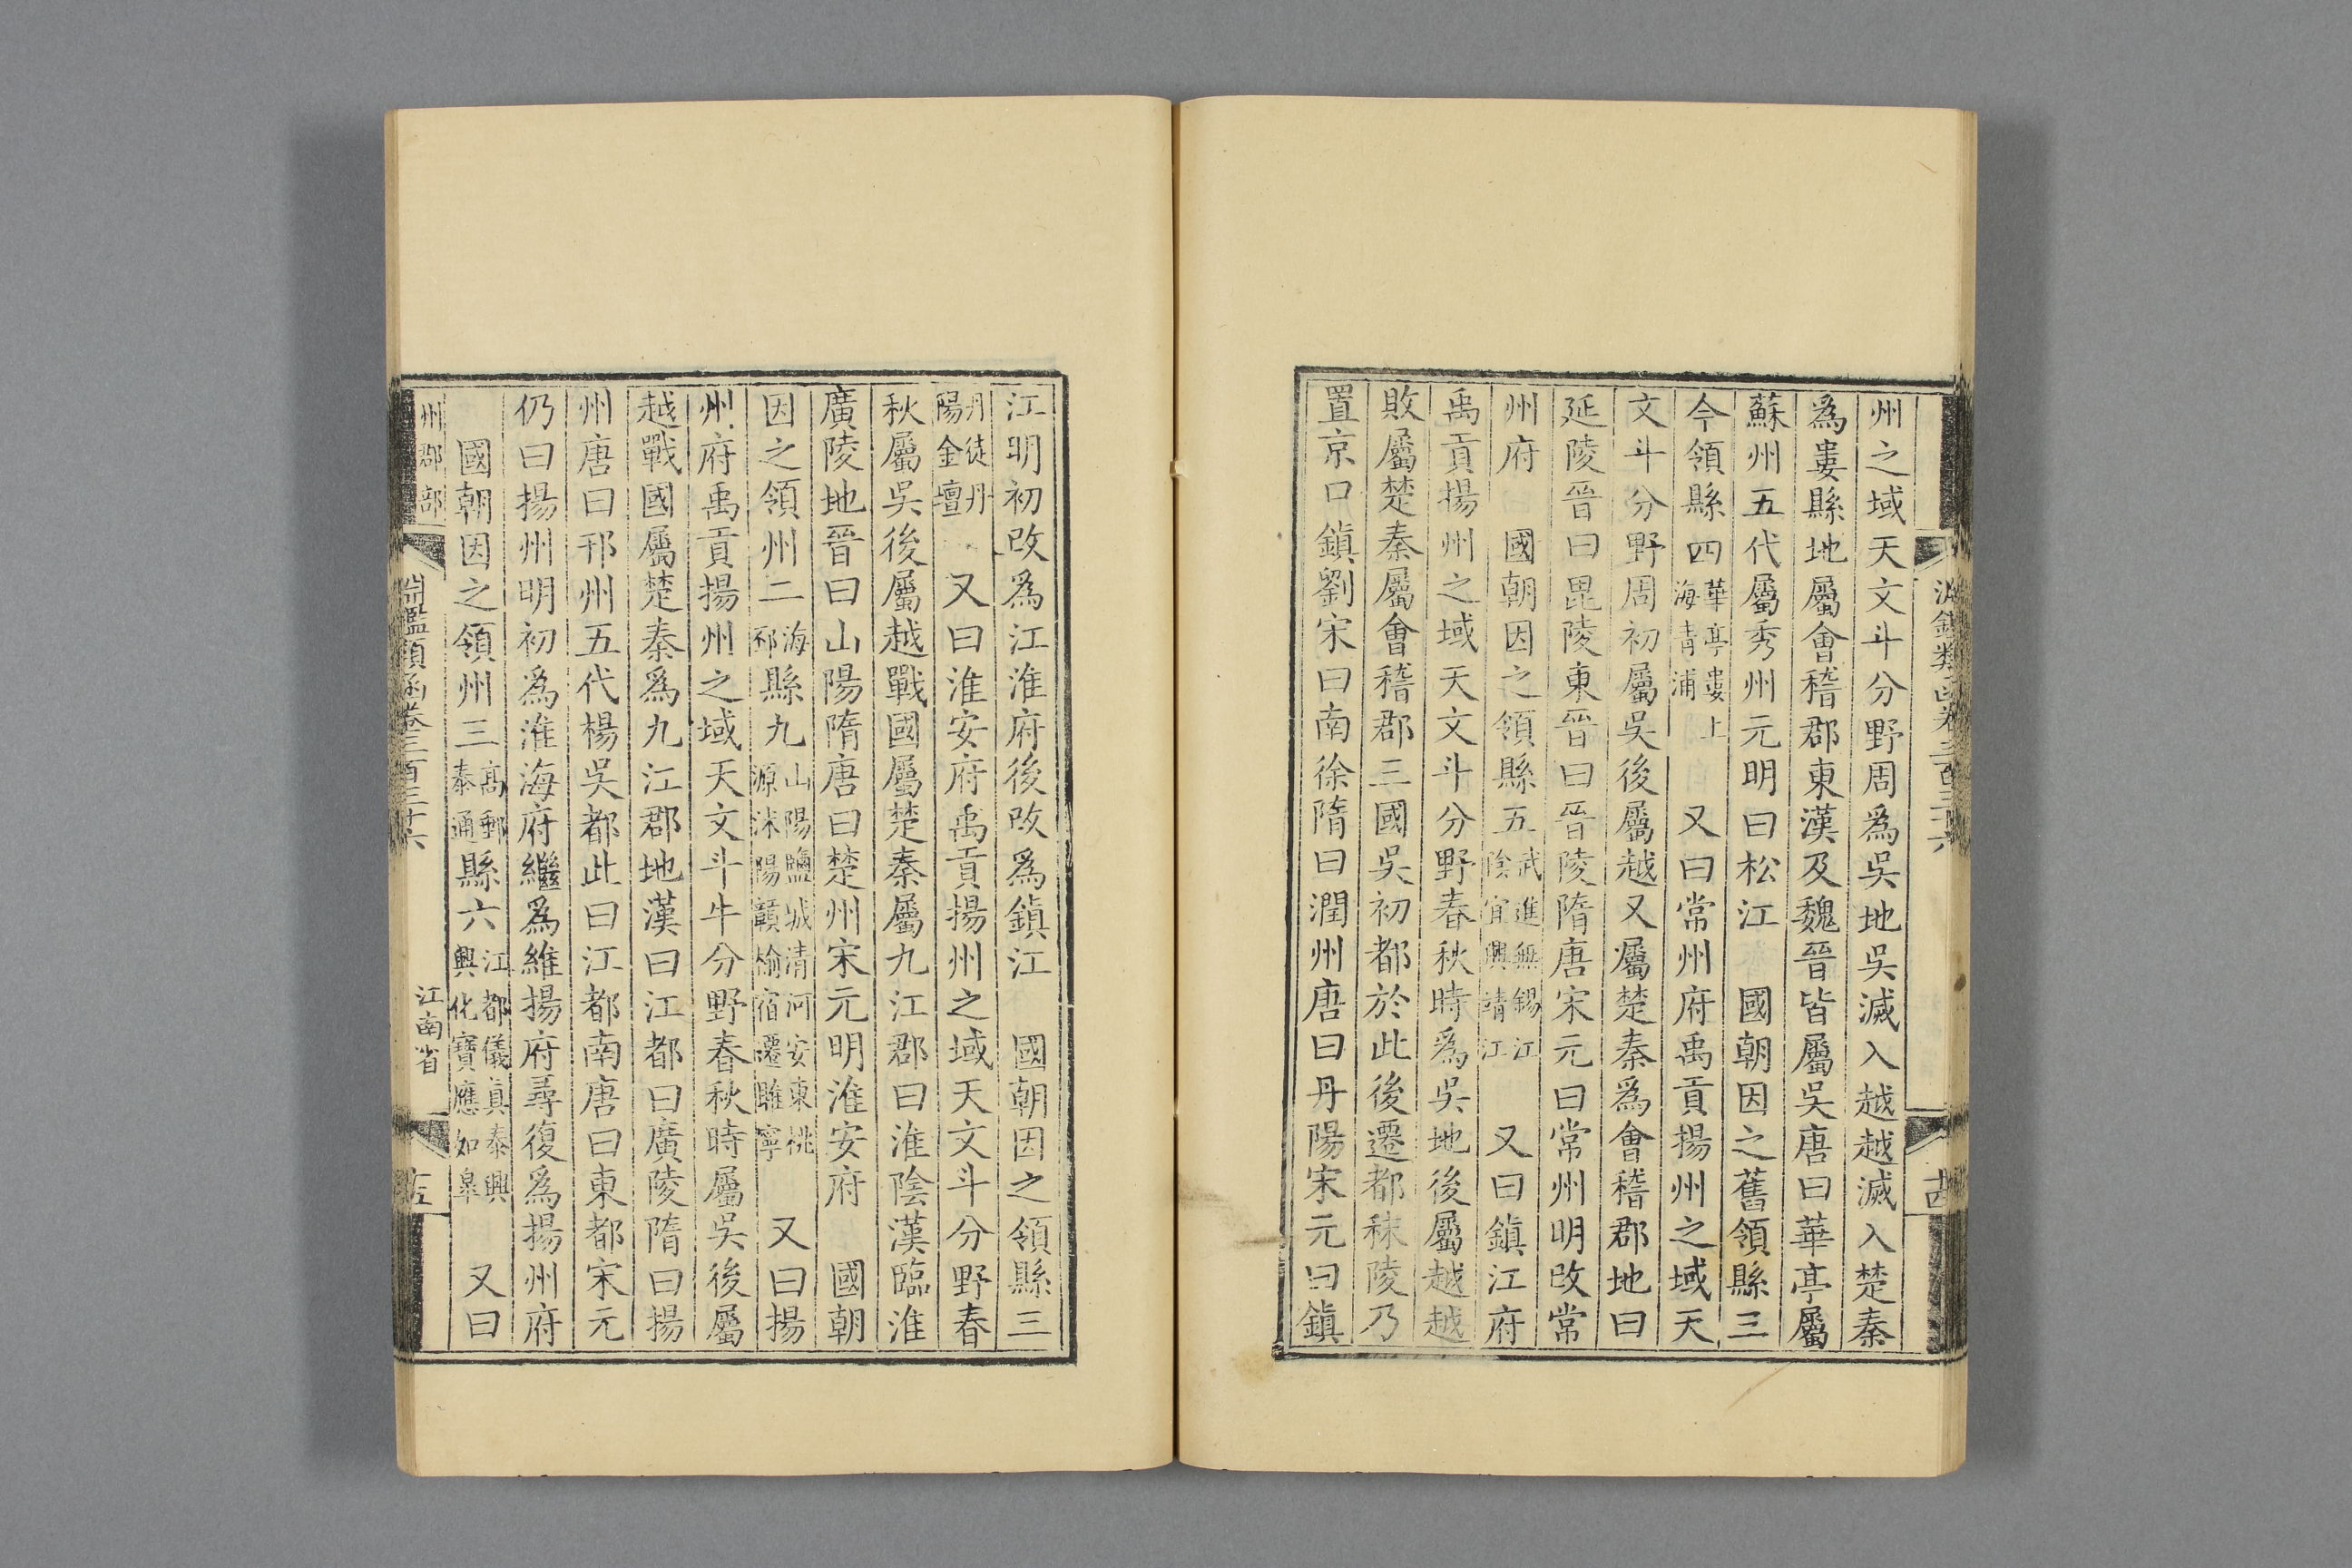 州之域天文斗分野周爲吳地吳滅入越越滅入楚秦
爲婁縣地屬會稽郡東漢及魏晉皆屬吳唐曰華亭屬
蘇州五代屬秀州元明曰松江　國朝因之舊領縣三
今領縣四華亭婁上海青浦　又曰常州府禹貢揚州之域天
文斗分野周初屬吳後屬越又屬楚秦爲會稽郡地曰
延陵晉曰毘陵東晉曰晉陵隋唐宋元曰常州明改常
州府　國朝因之領縣五武進無錫江陰宜興靖江　又曰鎮江府
禹貢揚州之域天文斗分野春秋時爲吳地後屬越越
敗屬楚秦屬會稽郡三國吳初都於此後遷都秣陵乃
置京口鎮劉宋曰南徐隋曰潤州唐曰丹陽宋元曰鎮
江明初改爲江淮府後改爲鎮江　國朝因之領縣三
丹徒丹陽金壇　又曰淮安府禹貢揚州之域天文斗分野春
秋屬吳後屬越戰國屬楚秦屬九江郡曰淮陰漢臨淮
廣陵地晉曰山陽隋唐曰楚州宋元明淮安府　國朝
因之領州二海邳縣九山陽鹽城清河安東桃源沭陽贛榆宿遷睢寧　又曰揚
州府禹貢揚州之域天文斗牛分野春秋時屬吳後屬
越戰國屬楚秦爲九江郡地漢曰江都曰廣陵隋曰揚
州唐曰邗州五代楊吳都此曰江都南唐曰東都宋元
仍曰揚州明初爲淮海府繼爲維揚府尋復爲揚州府
國朝因之領州三高郵泰通縣六江都儀真泰興興化寶應如皋　又曰
州郡部　淵鑑類函卷三百三十六　江南省　十五